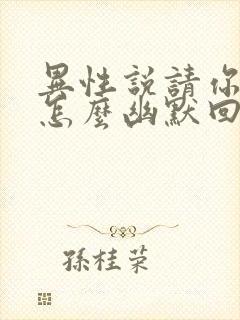 異性說請你
怎麼幽默回
孫桂榮